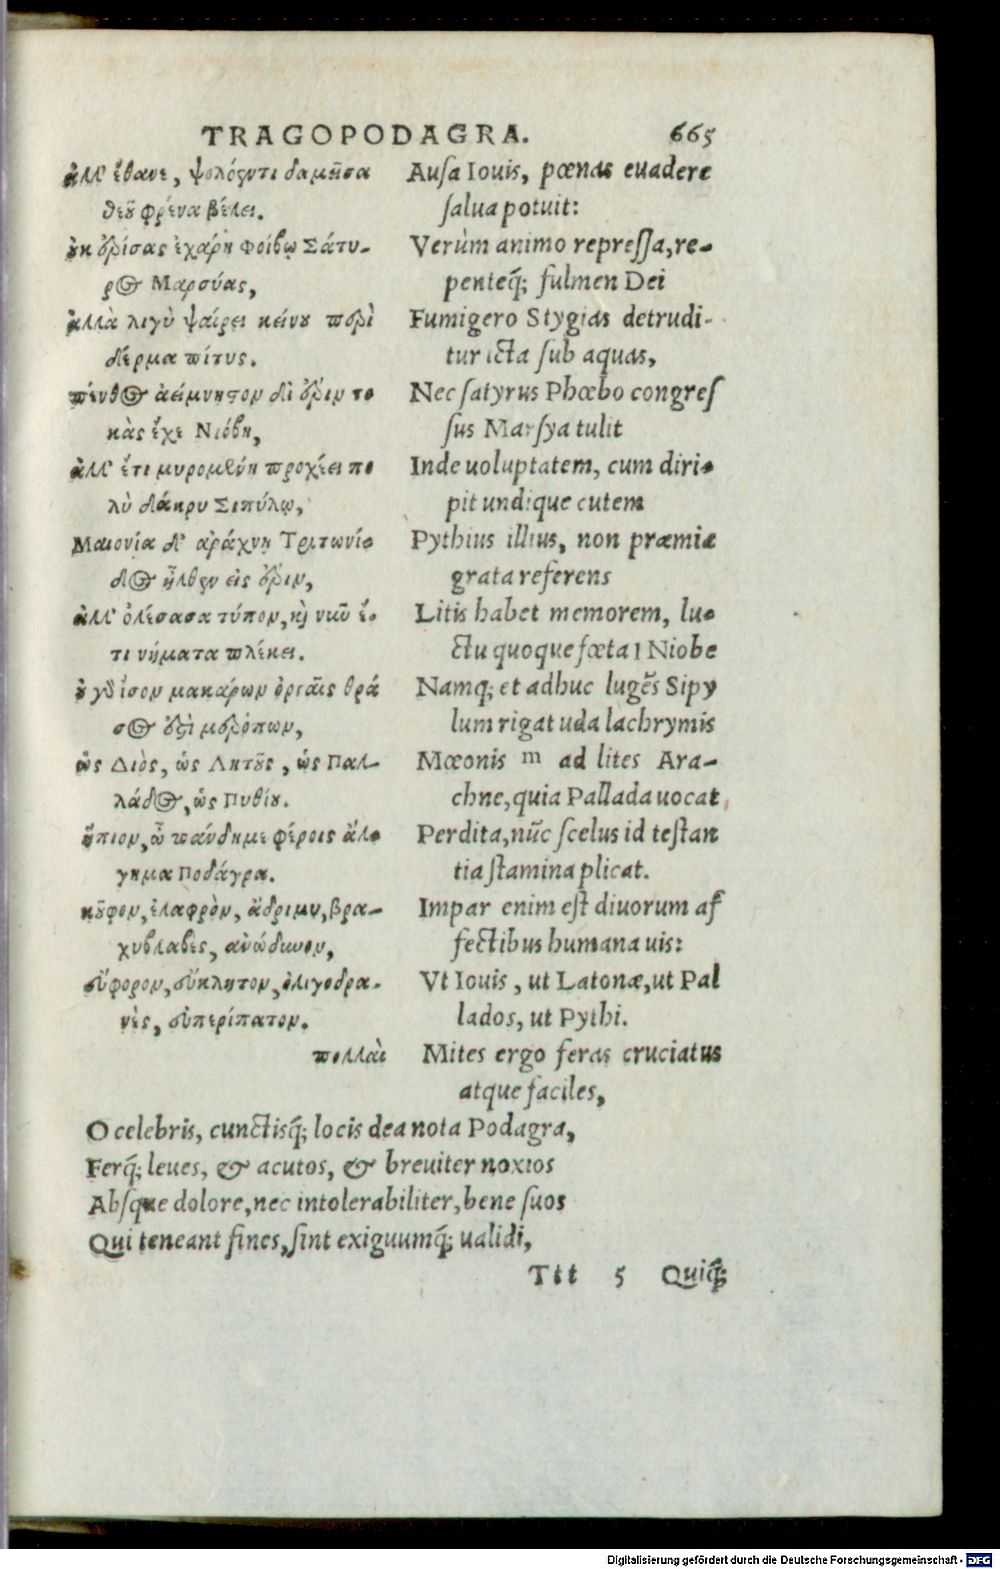 TRAGOPODAGRA. 665
ἀλλ' ἔθανε, ψολόεντι δαμεῖσα
θεοῦ φρένα βέλει.
οὐκ ἐρίσας ἐχάρη Φοίβῳ Σάτυ-
ρος Μαρσύας,
ἀλλὰ λιγὺ ψαίρει κείνου περὶ
δέρμα πίτυς.
πένθος ἀείμνηστον δι' ἔριν το
κὰς ἔχε Νιόβη,
ἀλλ' ἔτι μυρομένη προχέει πο
λὺ δάκρυ Σιπύλῳ,
Μαιονία δ' ἀράχνη Τριτωνίδος
ἦλθεν εἰς ἔριν,
ἀλλ' ὀλέσασα τύπον, καὶ νῦν ἔ-
τι νήματα πλέκει.
οὐ γὰρ ἴσον μακάρων ὀργαῖς θρά
σος ἐστὶ μερόπων,
ὡς Διὸς, ὡς Λητοῦς, ὡς Παλ-
λάδος, ὡς Πυθίου.
ἤπιον, ὦ πάνδημε φέροις ἄλ-
γημα Ποδάγρα.
κοῦφον, ἐλαφρὸν, ἄδριμυ, βρα-
χυβλαβὲς, ἀνώδυνον,
εὔφορον, εὔκλητον, ὀλιγοδρα-
νὲς, εὐπερίπατον.
πολλαὶ
Ausa Iouis, pœnas euadere
salua potuit:
Verùm animo repressa, re-
penteq́; fulmen Dei
Fumigero Stygias detrudi-
tur icta sub aquas,
Nec satyrus Phœbo congres
sus Marsya tulit
Inde uoluptatem, cum diri-
pit undique cutem
Pythius illius, non præmia
grata referens
Litis habet memorem, lu-
ctu quoque fœta Niobe
Namq́; et adhuc lugẽs Sipy
lum rigat uda lachrymis
Mœonis m ad lites Ara-
chne, quia Pallada uocat,
Perdita, nũc scelus id testan
tia stamina plicat.
Impar enim est diuorum af
fectibus humana uis:
Vt Iouis, ut Latonæ, ut Pal
lados, ut Pythi.
Mites ergo feras cruciatus
atque faciles,
O celebris, cunctisq́; locis dea nota Podagra,
Ferq́; leues, & acutos, & breuiter noxios
Absque dolore, nec intolerabiliter, bene suos
Qui teneant fines, sint exiguumq́; ualidi,
Ttt 5 Quiq́;
Digitalisierung gefördert durch die Deutsche Forschungsgemeinschaft - DFG